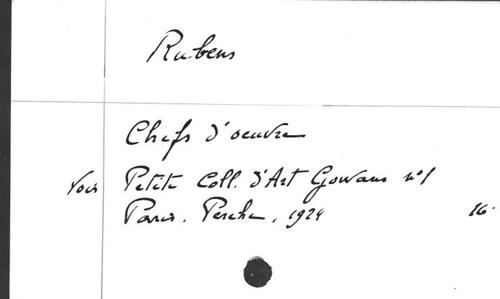 Rubens
Chefs d'oeuvre
Voir Petite Coll. d'Art Gowans n°1
Paris. Perche, 1924 16°